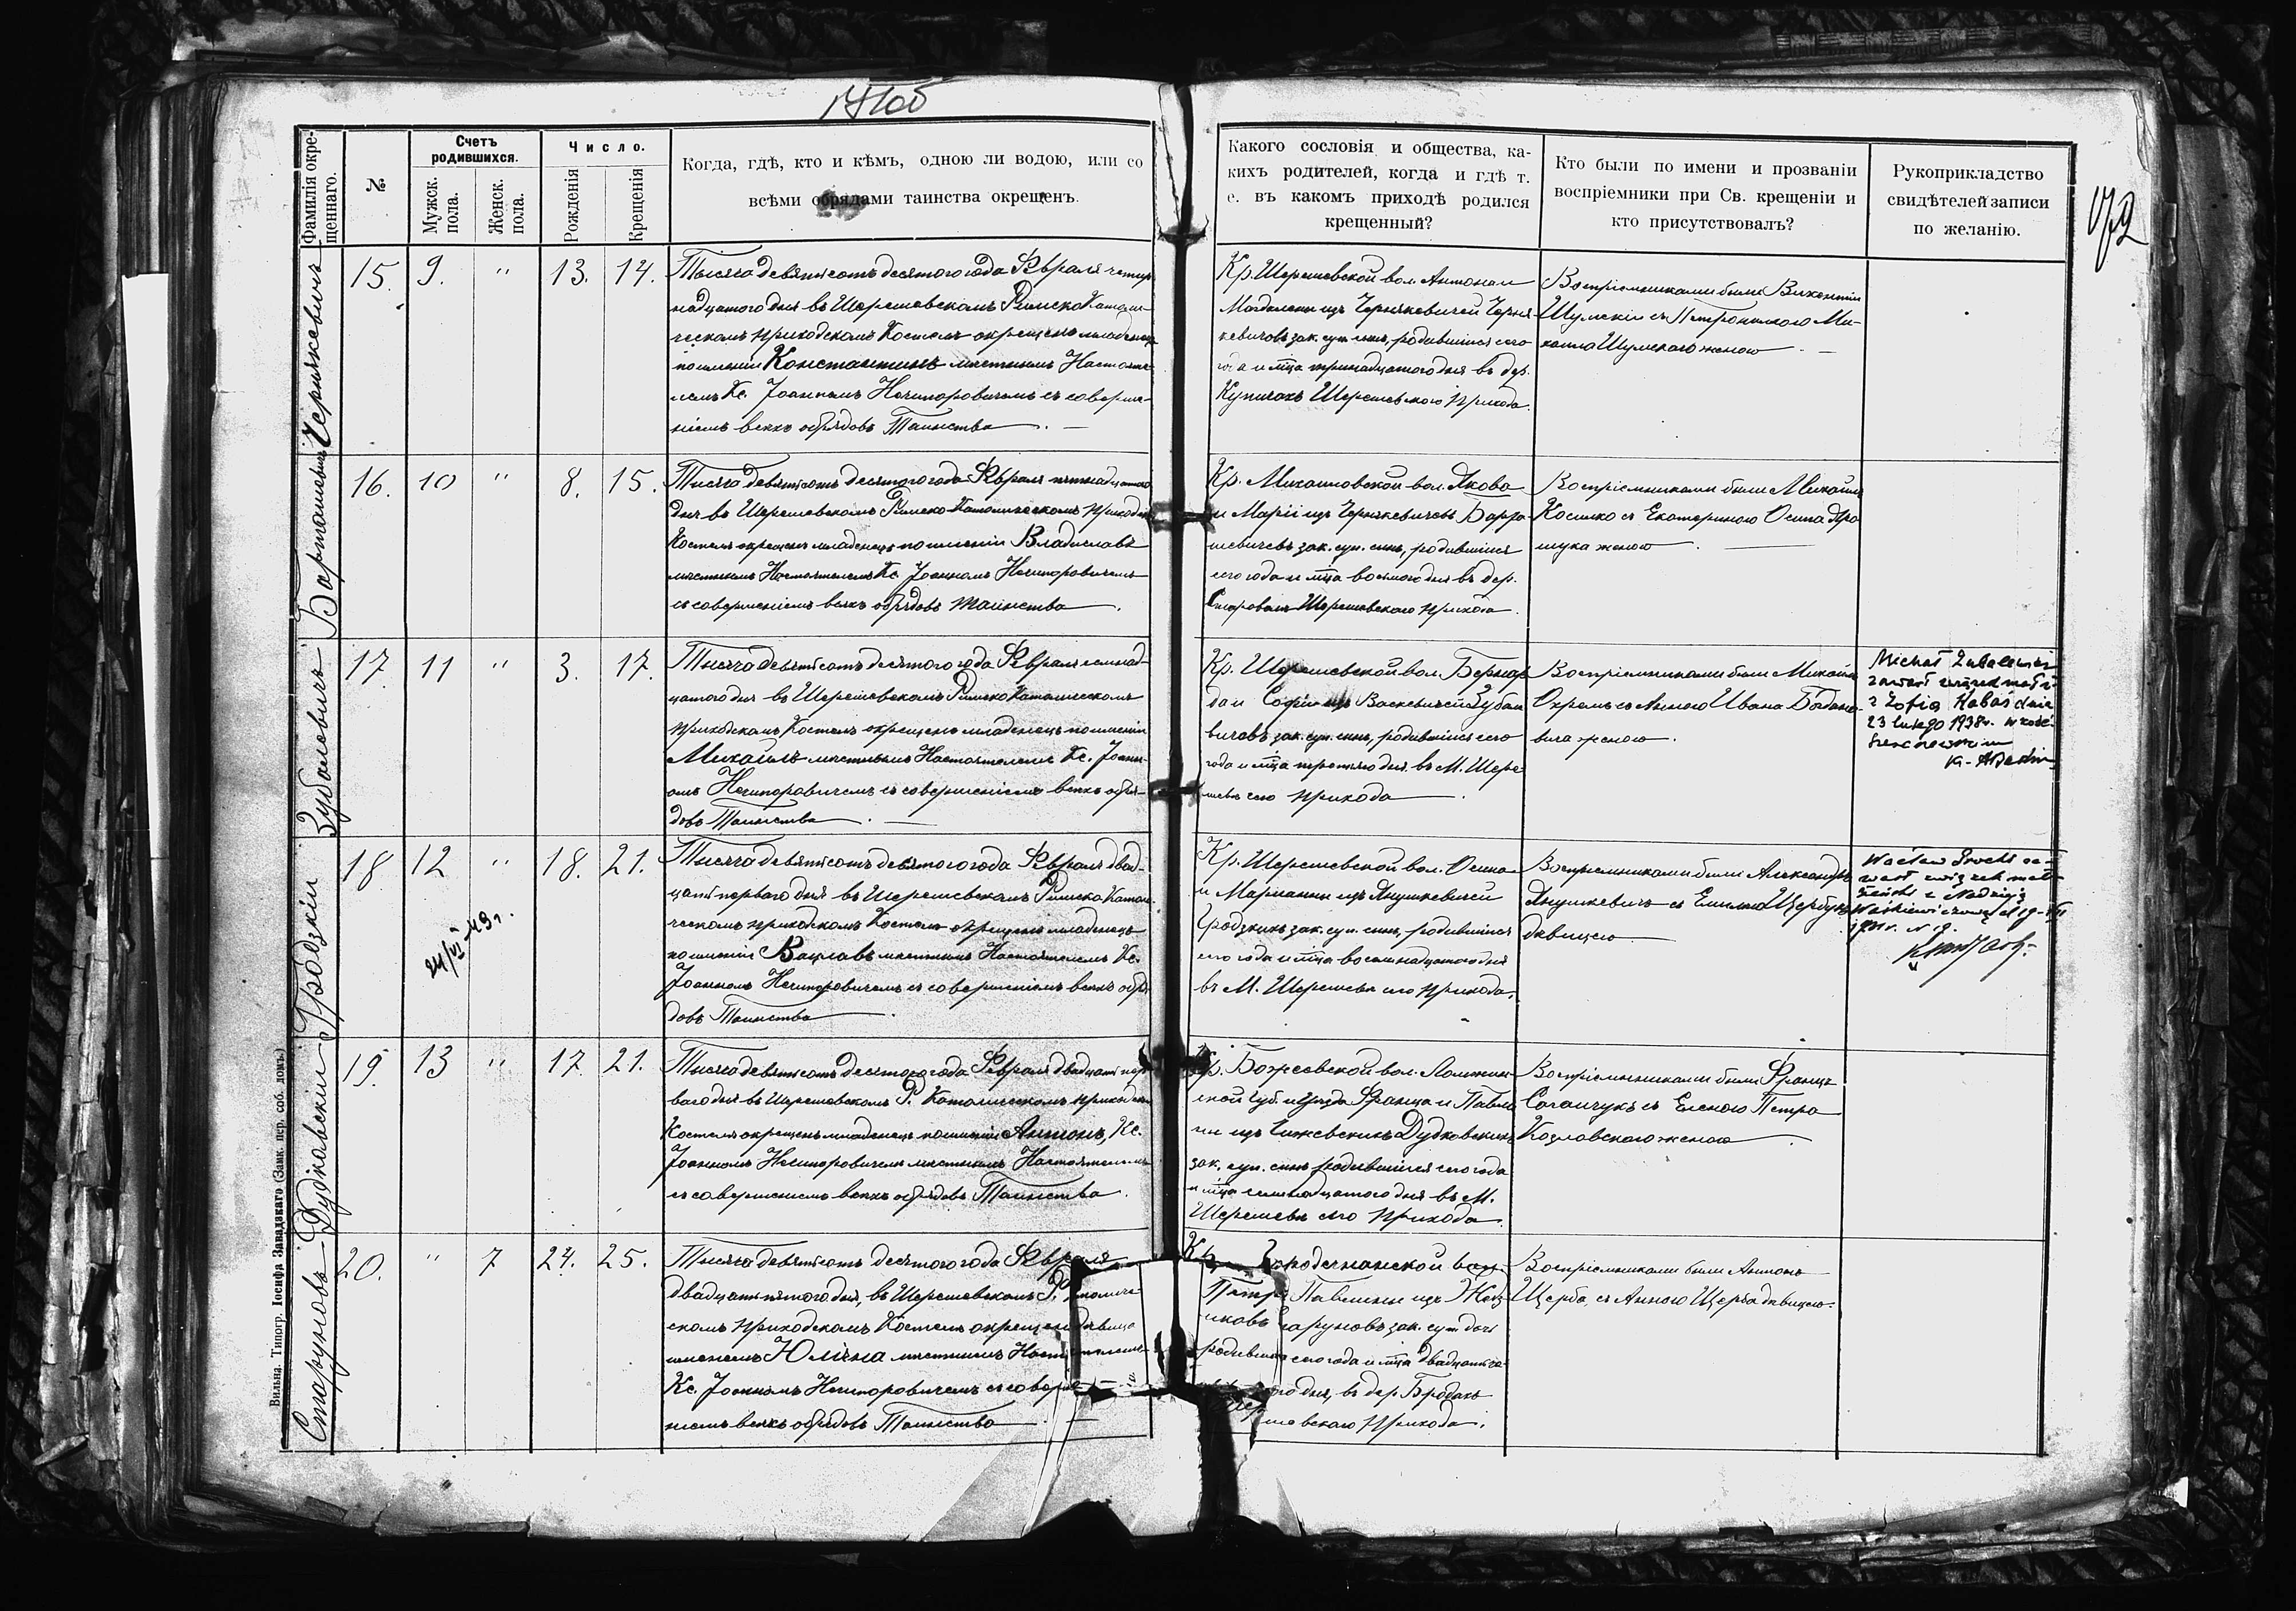 172
Фамилія окре-
щеннаго.
№
Счетъ
родившихся.
Мужск.
пола.
Женск.
пола.
Число.
Рожденія
Крещенія
Когда, гдѣ, кто и кѣмъ, одною ли водою, или со
всѣми обрядами таинства окрещенъ.
Какого сословія и общества, ка-
кихъ родителей, когда и гдѣ т.
е. въ какомъ приходѣ родился
крещенный?
Кто были по имени и прозванію
воспріемники при Св. крещеніи и
кто присутствовалъ?
Рукоприкладство
свидѣтелей записи
по желанію.
Чернякевичъ
15. 9. " 13. 14.
Тысяча девятьсотъ десятого года Февраля четыр-
надцатого дня въ Шерешевскомъ Римско Катали-
ческомъ приходскомъ Костелѣ окрещенъ младенецъ
по имени Константинъ мѣстнымъ Настояте-
лемъ Кс. Іоанномъ Нечипоровичемъ съ соверше-
ніемъ всѣхъ обрядовъ Таинства.
Кр. Шерешевской вол. Антона и
Магдалены изъ Чернякевичей Черня-
кевичовъ зак. суп. сынъ, родившійся сего
года и мца тринадцатого дня въ дер.
Купичахъ Шерешевского прихода.
Воспріемниками были Викентій
Шумскій съ Петронелею Ми-
хаила Шумскаго женою
Бартошевичъ
16. 10 " 8. 15.
Тысяча девятьсотъ десятого года Февраля пятнадцатого
дня въ Шерешевскомъ Римско-Католическомъ приходскомъ
Костелѣ окрещенъ младенецъ по имени Владиславъ
мѣстнымъ Настоятелемъ Кс. Іоанномъ Нечипоровичемъ
съ совершеніемъ всѣхъ обрядовъ таинства.
Кр. Михайловской вол. Якова
и Маріи изъ Чернякевичовъ Барто-
шевичевъ зак. суп. сынъ, родившійся
сего года и мца восьмого дня въ дер.
Шерешевскаго прихода.
Воспріемниками были Михаилъ
Косилко съ Екатериною Осипа
женою.
Зубаловичъ
17. 11 " 3. 17.
Тысяча девятьсотъ десятого года Февраля семнад-
цатого дня въ Шерешевскомъ Римско Католическомъ
приходскомъ Костелѣ окрещенъ младенецъ по имени
Михаилъ мѣстнымъ Настоятелемъ Кс. Іоанн-
омъ Нечипоровичемъ съ совершеніемъ всѣхъ обря-
довъ Таинства.
Кр. Шерешевской вол. Бернар-
да и Софіи изъ Васкевичей Зубал-
вичовъ зак. суп. сынъ, родившійся сего
года и мца третьяго дня въ М. Шере-
шевѣ сего прихода.
Воспріемниками были Михаилъ
съ Анною Ивана Богдано-
вича женою.
Michał
zawarł związek małż.
z Zofią Kabaś dnia
23 lutego 1938 r. w kośc.
Гродзкій
18 12 " 18. 21.
24/VI 43 г.
Тысяча девятьсотъ десятого года Февраля двад-
цать перваго дня въ Шерешевскомъ Римско Катали-
ческомъ приходскомъ Костелѣ окрещенъ младенецъ
по имени Вацлавъ мѣстнымъ Настоятелемъ Кс.
Іоанномъ Нечипоровичемъ съ совершеніемъ всѣхъ обря-
довъ Таинства.
Кр. Шерешевской вол. Осипа
и Маріанны изъ Янушкевичей
Гродзкихъ зак. суп. сынъ, родившійся
сего года и мца восемнадцатого дня
въ М. Шерешевѣ сего прихода.
Воспріемниками были Александръ
Янушкевичъ съ Емиліею Щербукъ
дѣвицею
Wacław Grodzki za-
warł związek mał-
żeński z Nadzieją
Waśkiewiczówną
Дудковскій
19. 13 " 17. 21.
Тысяча девятьсотъ десятого года Февраля двадцать пер-
ваго дня въ Шерешевскомъ Р. Католическомъ приходскомъ
Костелѣ окрещенъ младенецъ по имени Антонъ, Кс.
Іоанномъ Нечипоровичемъ мѣстнымъ Настоятелемъ
съ совершеніемъ всѣхъ обрядовъ Таинства.
Кр. вол. Ломжин-
ской губ. и уѣзда Франца и Павли-
ны изъ Чижевскихъ Дудковскихъ
зак. суп. сынъ родившійся сего года
и мца семнадцатого дня въ М.
Шерешевѣ сего прихода.
Воспріемниками были Францъ
съ Еленою Петра
Козловскаго женою.
Старуновъ
20. " 7 24. 25.
Тысяча девятьсотъ десятого года Февраля
двадцать пятого дня, въ Шерешевскомъ Р.
скомъ приходскомъ Костелѣ окрещена дѣвица
именемъ Юліяна мѣстнымъ
Кс. Іоанномъ Нечипоровичемъ съ соверше-
ніемъ всѣхъ обрядовъ Таинства.
вол.
Павлины изъ
зак. суп. дочь
сего года и мца двадцать че-
дня, въ дер. Бродахъ
прихода.
Воспріемниками были Антонъ
Щерба, съ Анною Щерба дѣвицею.
Вильна. Типогр. Іосифа Завадзкаго (Замк. пер. соб. домъ.)